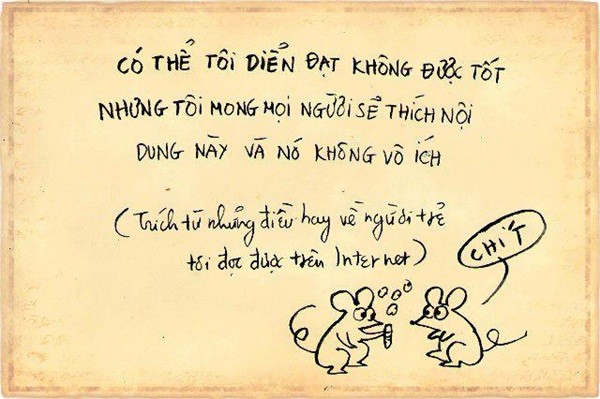 CÓ THỂ TÔI DIỂN ĐẠT KHÔNG ĐƯỢC TỐT
NHƯNG TÔI MONG MỌI NGƯỜI SẼ THÍCH NỘI
DUNG NÀY VÀ NÓ KHÔNG VÔ ÍCH
(Trích từ nhưng điều hay về người trẻ
tôi đọc được trên Internet)
CHÍT